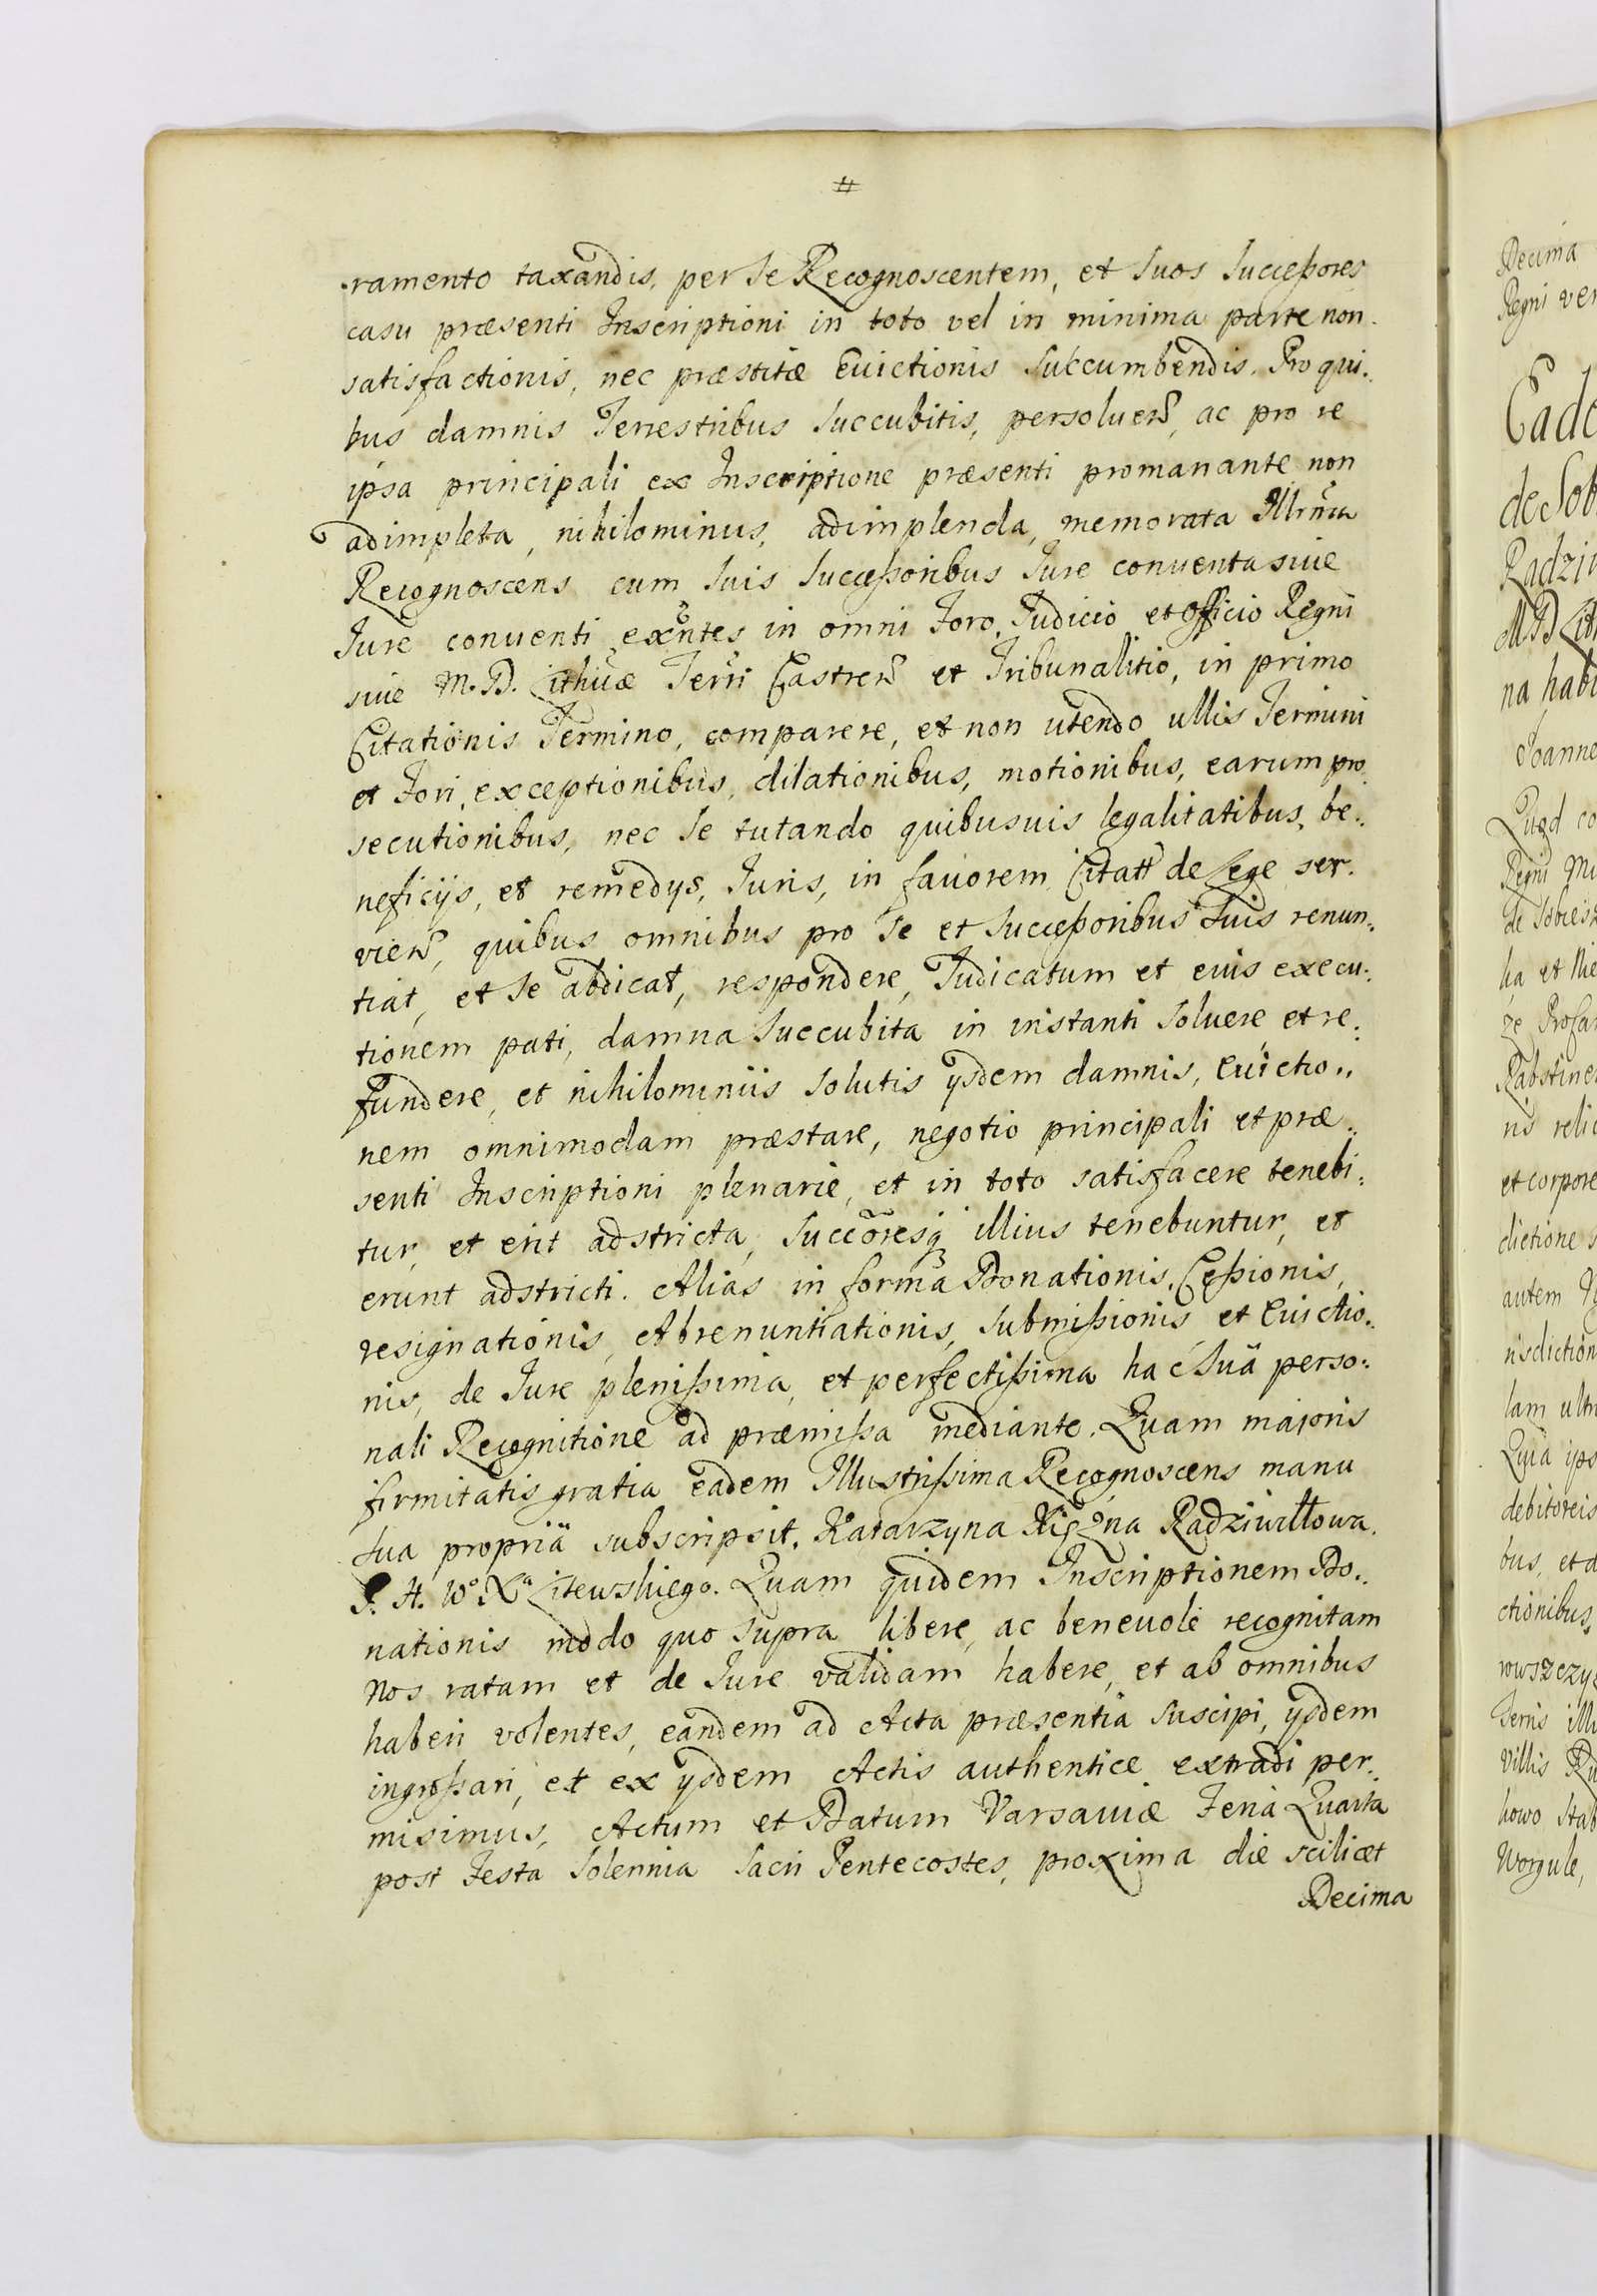 #
ramento taxandis, per Se Recognoscentem, et Suos Successores
casu præsenti Inscriptioni in toto vel in minima parte non
satisfactionis, nec præstitæ Euictionis Succumbendis. Pro qui:
bus damnis Terrestribus Succubitis, persoluen, ac pro re
ipsa principali ex Inscriptione præsenti promanante non
adimpleta, nihilominus, adimplenda, memorata Illrma
Recognoscens cum Suis Successoribus Jure conuenta siue
Jure conuenti exñtes in omni Foro, Judicio et Officio Regni
siue M. D. Lithuæ Terri Castren et Tribunalitio, in primo
Citationis Termino, comparere, et non utendo ullis Termini
et Fori, exceptionibus, dilationibus, motionibus, earum pro
secutionibus, nec Se tutando quibusuis legalitatibus, be:
neficijs, et remedys, Juris, in fauorem Citatt de Lege ser:
vien, quibus omnibus pro Se et Successoribus Suis renun:
tiat, et Se abdicat, respondere, Judicatum et eius execu:
tionem pati, damna Succubita in instanti Soluere, et re:
fundere, et nihilominus Solutis ysdem damnis, Euictio:
nem omnimodam præstare, negotio principali et præ:
senti Inscriptioni plenarie, et in toto satisfacere tenebi:
tur, et erit adstricta, Succõresq illius tenebuntur, et
erunt adstricti. Alias in forma Donationis, Cessionis,
resignationis, Abrenuntiationis, Submissionis et Euictio:
nis, de Jure plenissima, et perfectissima hac Suâ perso:
nali Recognitione ad præmissa mediante. Quam majoris
firmitatis gratia eadem Illustrissima Recognoscens manu
Sua propriâ subscripsit. Katarzyna Xiężna Radziwiłłowa.
P. H. Wo Xa Litewskiego. Quam quidem Inscriptionem Do:
nationis modo quo Supra libere, ac beneuole recognitam
Nos ratam et de Jure validam habere, et ab omnibus
haberi volentes, eandem ad Acta præsentia Suscipi, ysdem
ingrossari, et ex ysdem Actis authentice extradi per:
misimus, Actum et Datum Varsauiæ Feria Quarta
post Festa Solennia Sacri Pentecostes, proxima die scilicet
Decima
Decima
Regni
Cade
de Sob
M D Lit
na habi
Joanne
Quod co
Regni
et corpore
dictione
autem
Quia
bus, et d
ctionibus,
Villis
howo
Worgule,